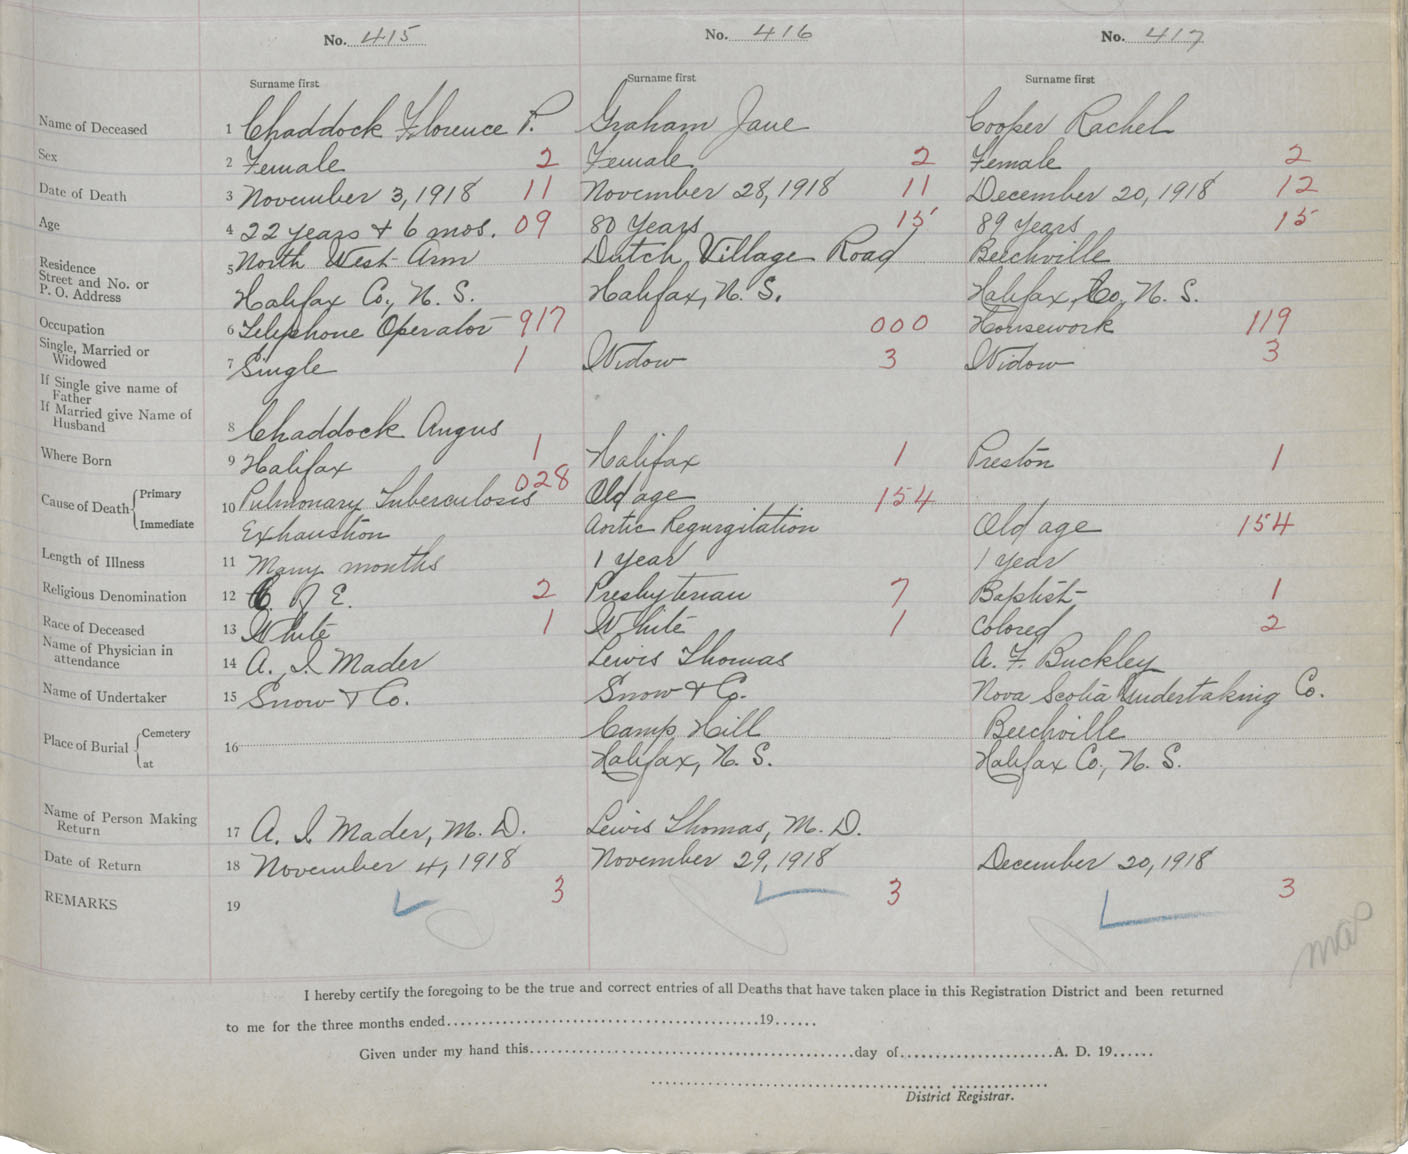 No. 415 No. 416 No. 417
Surname first Surname first Surname first
Name of Deceased 1 Chaddock Florence P. Graham Jane Cooper Rachel
Sex 2 Female 2 Female 2 Female 2
Date of Death 3 November 3, 1918 11 November 28, 1918 11 December 20, 1918 12
Age 4 22 years & 6 mos. 09 80 Years 15 89 Years 15
Residence
Street and No. or
P. O. Address
5 North West Arm Dutch Village Road Beechville
Halifax Co., N. S. Halifax, N. S. Halifax, Co, N. S.
Occupation 6 Telephone Operator 917 000 Housework 119
Single, Married or
Widowed
7 Single 1 Widow 3 Widow 3
If Single give name of
Father
If Married give Name of
Husband
8 Chaddock Angus
Where Born 9 Halifax 1 Halifax 1 Preston 1
Cause of Death Primary 10 Pulmonary Tuberculosis 028 Old age 154
Immediate Exhaustion Aortic Regurgitation Old age 154
Length of Illness 11 Many months 1 year 1 year
Religious Denomination 12 C. of E. 2 Presbyterian 7 Baptist 1
Race of Deceased 13 White 1 White 1 Colored 2
Name of Physician in
attendance
14 A. I. Mader Lewis Thomas A. F. Buckley
Name of Undertaker 15 Snow & Co. Snow & Co. Nova Scotia Undertaking Co.
Place of Burial Cemetery 16 Camp Hill Beechville
at Halifax, N. S. Halifax Co., N. S.
Name of Person Making
Return
17 A. I. Mader, M. D. Lewis Thomas, M. D.
Date of Return 18 November 4, 1918 November 29, 1918 December 20, 1918
REMARKS 19 3 3 3
I hereby certify the foregoing to be the true and correct entries of all Deaths that have taken place in this Registration District and been returned
to me for the three months ended 19
Given under my hand this day of A. D. 19
District Registrar.